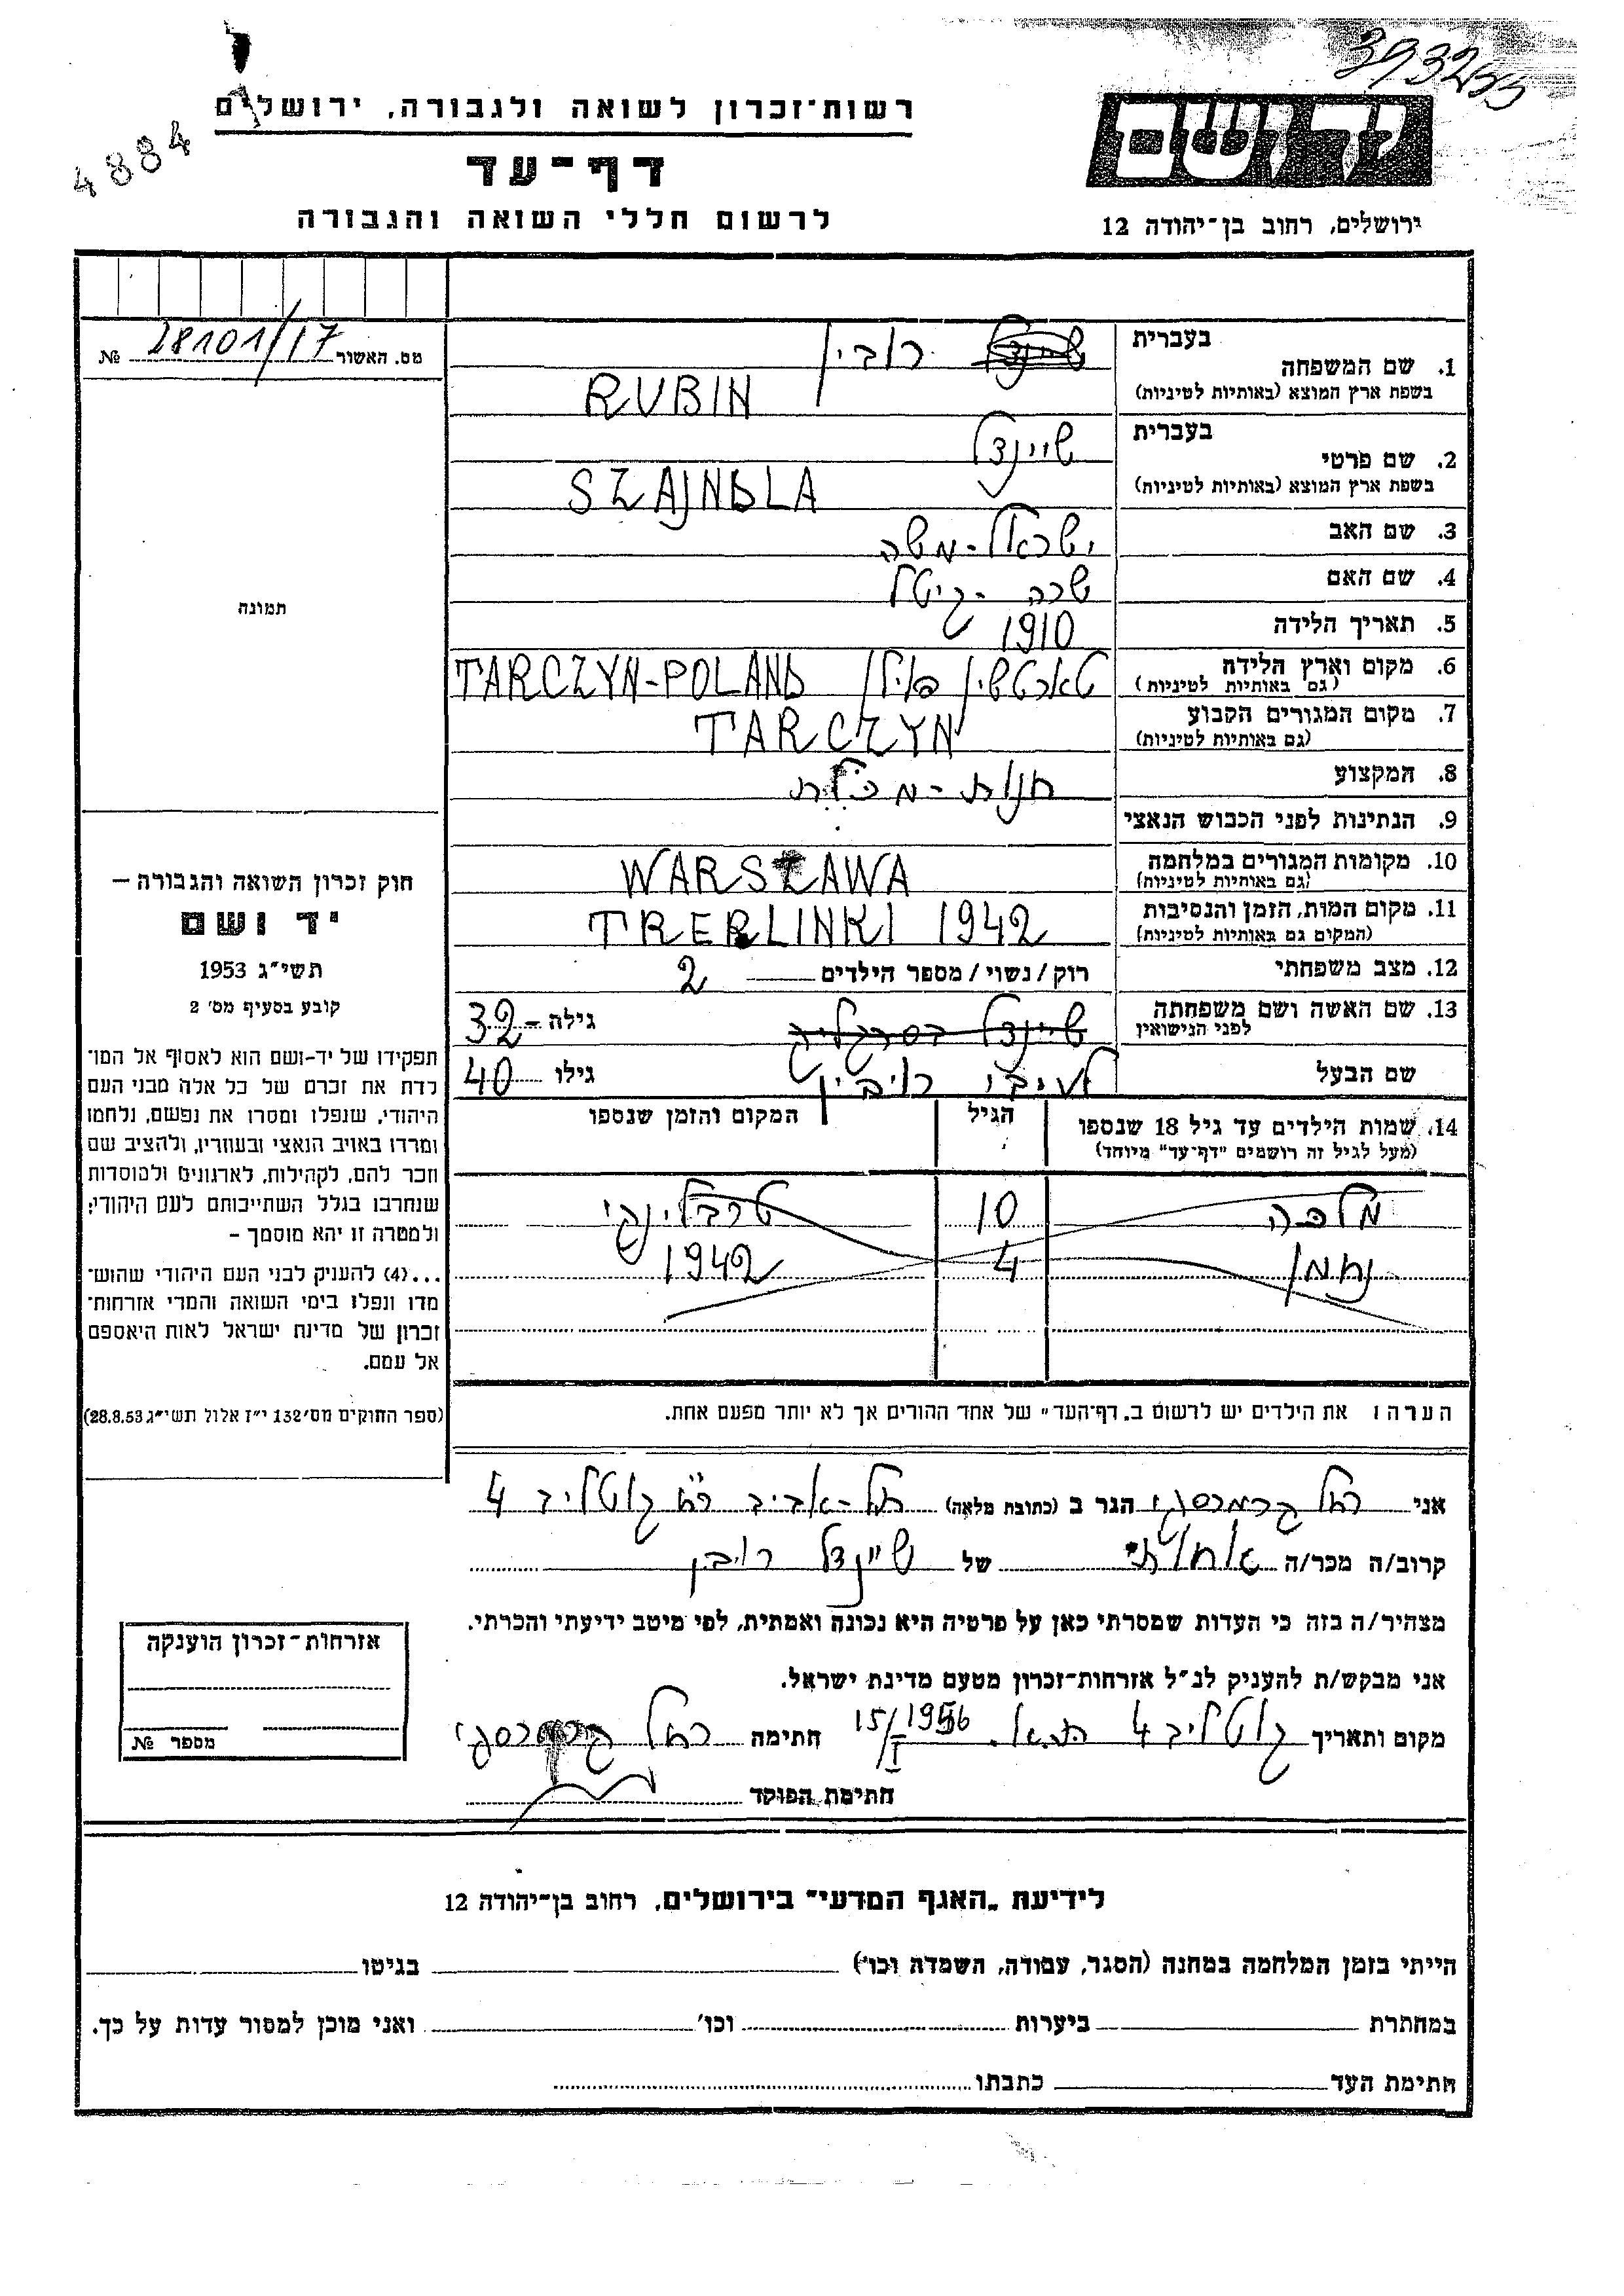 3932455
4884
רשות־זכרון לשואה ולגבורה, ירושלים
יד ושם
דף־עד
ירושלים, רחוב בן־יהודה 12
לרשום חללי השואה והגבורה
מס. האשור 28101/17 №
תמונה
חוק זכרון השואה והגבורה —
יד ושם
תשי״ג 1953
קובע בסעיף מס׳ 2
תפקידו של יד-ושם הוא לאסוף אל המו־
לדת את זכרם של כל אלה מבני העם
היהודי, שנפלו ומסרו את נפשם, נלחמו
ומרדו באויב הנאצי ובעוזריו, ולהציב שם
וזכר להם, לקהילות, לארגונים ולמוסדות
שנחרבו בגלל השתייכותם לעם היהודי;
ולמטרה זו יהא מוסמך —
...(4) להעניק לבני העם היהודי שהוש־
מדו ונפלו בימי השואה והמרי אזרחות־
זכרון של מדינת ישראל לאות היאספם
אל עמם.
(ספר החוקים מס׳ 132 י״ז אלול תשי״ג 28.8.53)
1. שם המשפחה בעברית שיינדל רובין
בשפת ארץ המוצא (באותיות לטיניות) RUBIN
2. שם פרטי בעברית שיינדל
בשפת ארץ המוצא (באותיות לטיניות) SZAJNDLA
3. שם האב ישראל-משה
4. שם האם שרה - גיטל
5. תאריך הלידה 1910
6. מקום וארץ הלידה (גם באותיות לטיניות) טארטשין פולין TARCZYN-POLAND
7. מקום המגורים הקבוע (גם באותיות לטיניות) TARCZYN
8. המקצוע חנות - מכולת
9. הנתינות לפני הכבוש הנאצי
10. מקומות המגורים במלחמה (גם באותיות לטיניות) WARSZAWA
11. מקום המות, הזמן והנסיבות (המקום גם באותיות לטיניות) TREBLINKI 1942
12. מצב משפחתי רוק/נשוי/מספר הילדים 2
13. שם האשה ושם משפחתה לפני הנישואין שיינדל גילה - 32
שם הבעל רובין גילו 40
14. שמות הילדים עד גיל 18 שנספו הגיל המקום והזמן שנספו
(מעל לגיל זה רושמים "דף־עד" מיוחד)
מלכה 10 טרבלינקי
נחמן 4 1942
הערה: את הילדים יש לרשום ב„דף־העד" של אחד ההורים אך לא יותר מפעם אחת.
אני רחל הגר ב (כתובת מלאה) תל-אביב רח׳ גוטליב 4
קרוב/ה מכר/ה אחותי של שיינדל רובין
מצהיר/ה בזה כי העדות שמסרתי כאן על פרטיה היא נכונה ואמתית, לפי מיטב ידיעתי והכרתי.
אני מבקש/ת להעניק לנ״ל אזרחות־זכרון מטעם מדינת ישראל.
מקום ותאריך גוטליב 4 ת.א. 15/I 1956 חתימה רחל
חתימת הפוקד
אזרחות־זכרון הוענקה
מספר №
לידיעת „האגף המדעי" בירושלים, רחוב בן־יהודה 12
הייתי בזמן המלחמה במחנה (הסגר, עבודה, השמדה וכו׳) בגיטו
במחתרת ביערות וכו׳ ואני מוכן למסור עדות על כך.
חתימת העד כתבתו